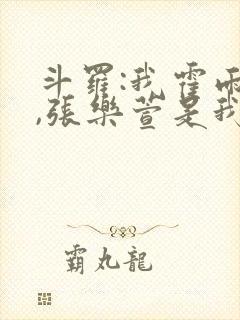 斗羅:我霍雨
,張樂萱是我
霸丸龍